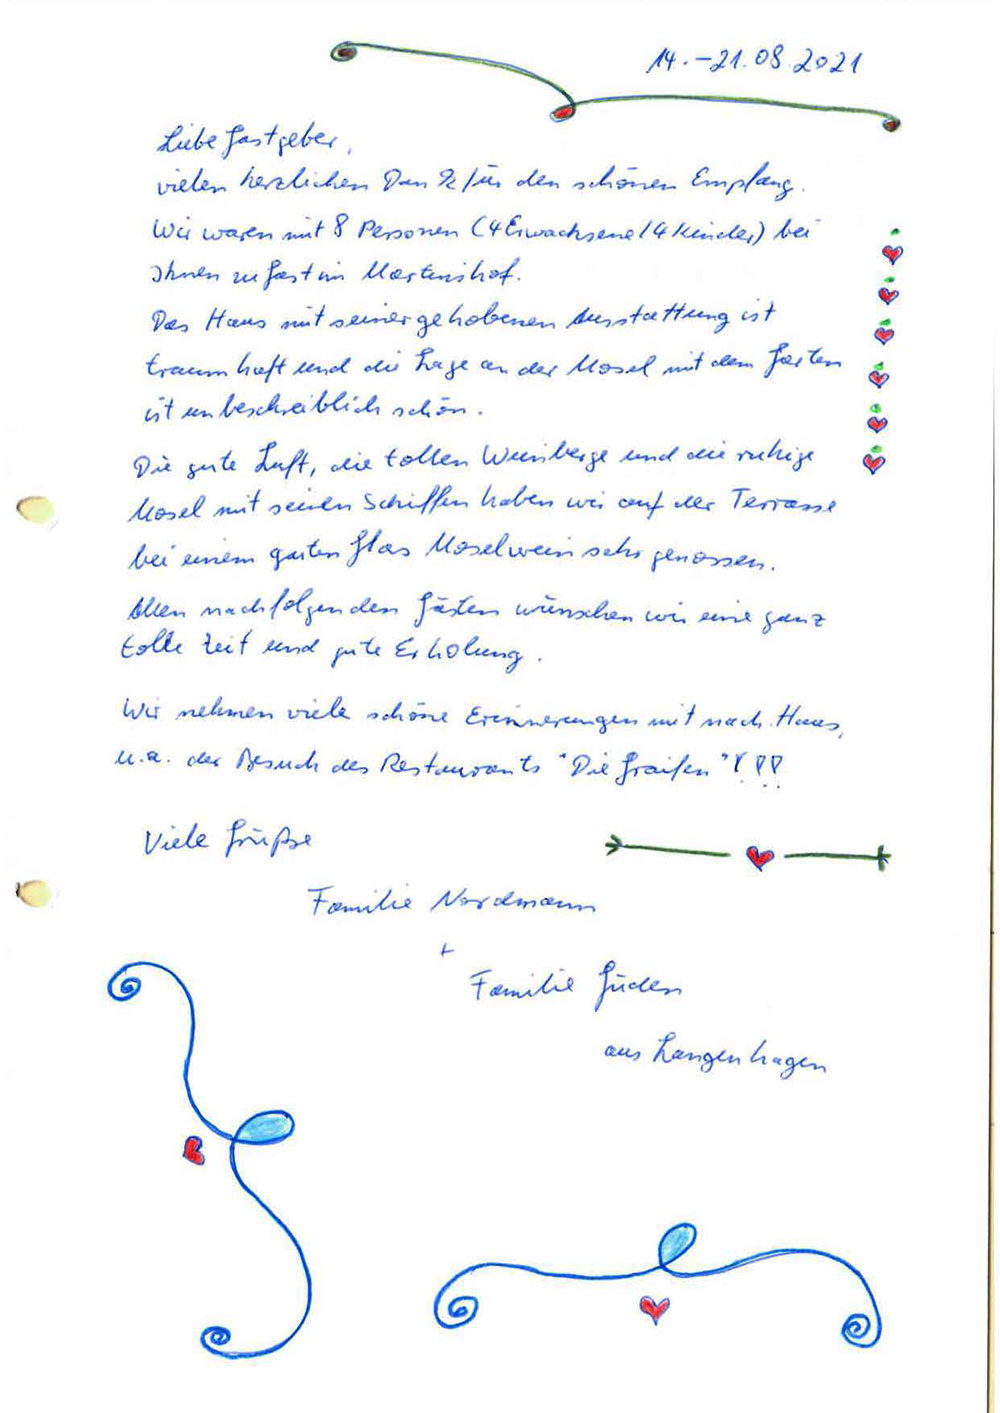 14.-21.08.2021
Liebe Gastgeber,
vielen herzlichen Dank für den schönen Empfang.
Wir waren mit 8 Personen (4 Erwachsene/4 Kinder) bei
Ihnen zu Gast im Martinshof.
Das Haus mit seiner gehobenen Ausstattung ist
traumhaft und die Lage an der Mosel mit dem Garten
ist unbeschreiblich schön.
Die gute Luft, die tollen Weinberge und die ruhige
Mosel mit seinen Schiffen haben wir auf der Terrasse
bei einem guten Glas Moselwein sehr genossen.
Allen nachfolgenden Gästen wünschen wir eine ganz
tolle Zeit und gute Erholung.
Wir nehmen viele schöne Erinnerungen mit nach Haus,
u.a. der Besuch des Restaurants "Die Graifen"!!!
Viele Grüße
Familie Nordmann
+
Familie Güden
aus Langenhagen